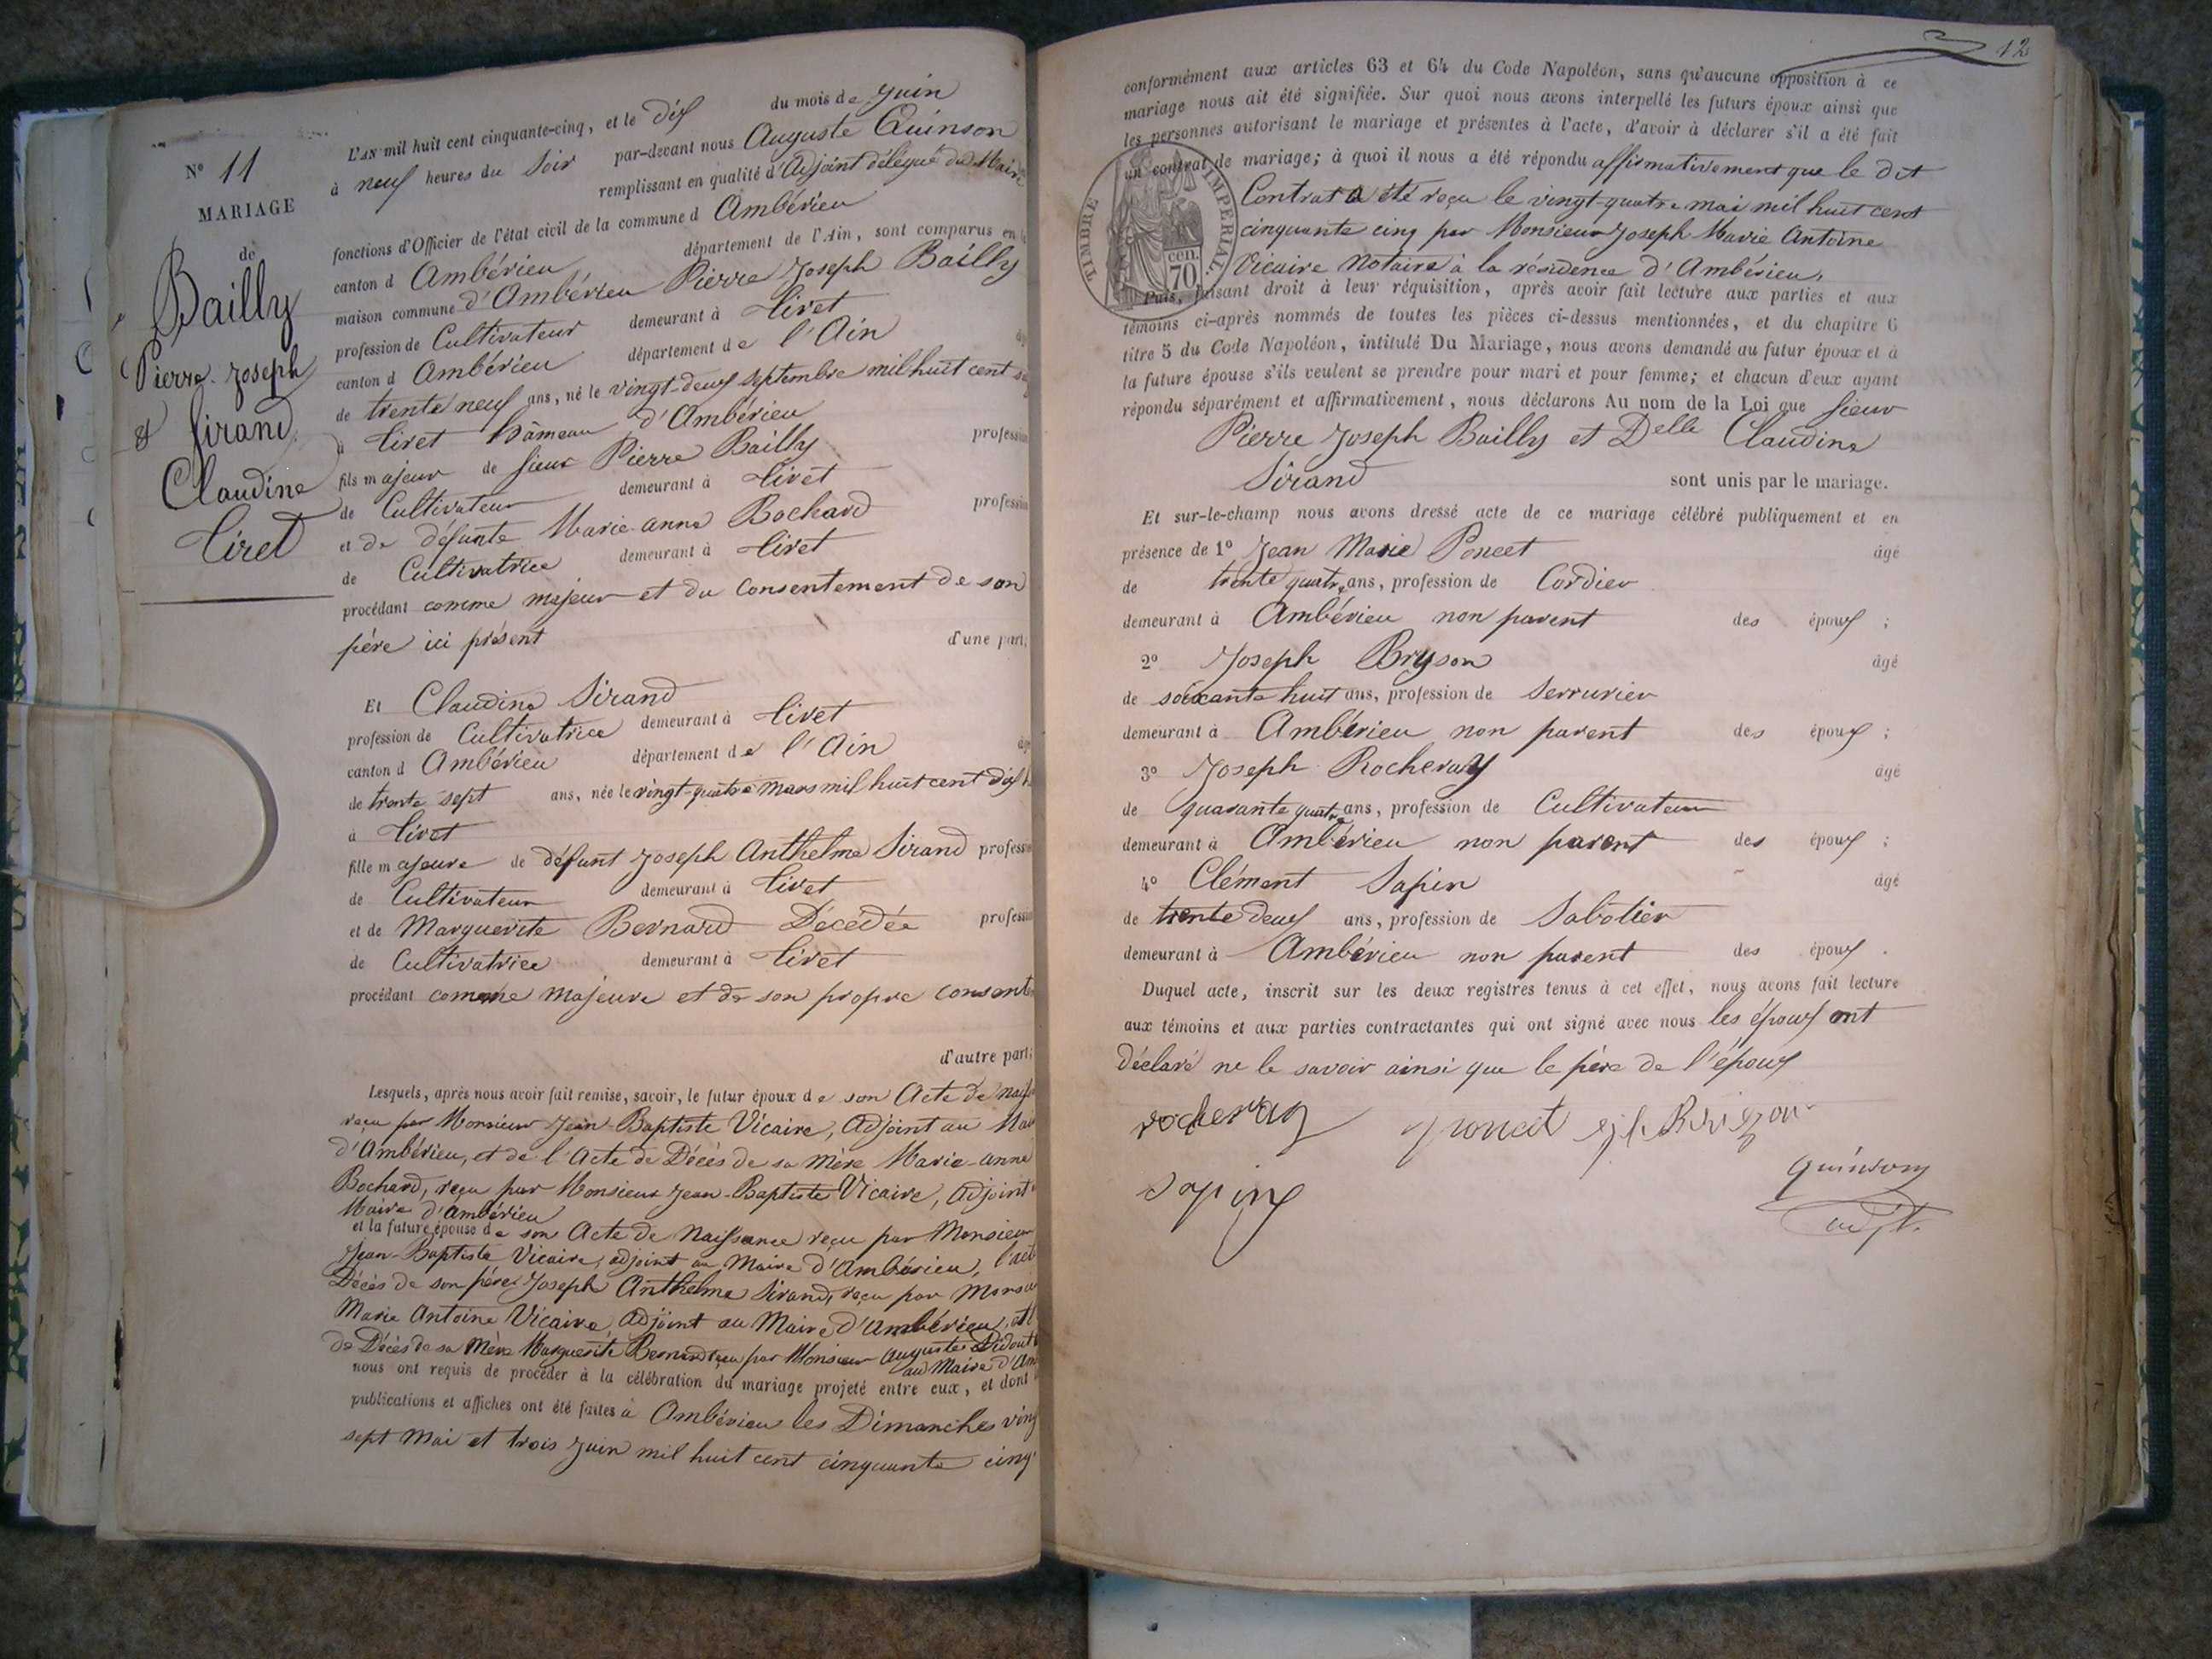 N° 11
MARIAGE
de
Bailly
Pierre-Joseph
& Sirand
Claudine
Tiret
L'AN mil huit cent cinquante-cinq, et le dix du mois de Juin
à neuf heures du Soir par-devant nous Auguste Quinson
remplissant en qualité d'Adjoint délégué du Maire
fonctions d'Officier de l'état civil de la commune d Ambérieu
canton d Ambérieu département de l'Ain, sont comparus en
maison commune d'Ambérieu Pierre Joseph Bailly
profession de Cultivateur demeurant à Tiret
canton d Ambérieu département de l'Ain
de trente neuf ans, né le vingt-deux septembre mil huit cent
à Tiret hâmeau d'Ambérieu
fils majeur de Sieur Pierre Bailly profession
de Cultivateur demeurant à Tiret
et de défunte Marie-anne Bochard profession
de Cultivatrice demeurant à Tiret
procédant comme majeur et du consentement de son
père ici présent d'une part;
Et Claudine Sirand
profession de Cultivatrice demeurant à Tiret
canton d Ambérieu département de l'Ain
de trente sept ans, née le vingt-quatre mars mil huit cent dix
à Tiret
fille majeure de défunt Joseph Anthelme Sirand profession
de Cultivateur demeurant à Tiret
et de Marguerite Bernard Décédée profession
de Cultivatrice demeurant à Tiret
procédant comme majeure et de son propre consent
d'autre part;
Lesquels, après nous avoir fait remise, savoir, le futur époux de son Acte de naiss
reçu par Monsieur Jean-Baptiste Vicaire, Adjoint au Mai
d'Ambérieu, et de l'Acte de Décès de sa Mère Marie-anne
Bochard, reçu par Monsieur Jean-Baptiste Vicaire, Adjoint
Maire d'Ambérieu
et la future épouse de son Acte de Naissance reçu par Monsieur
Jean-Baptiste Vicaire, adjoint au Maire d'Ambérieu, l'acte
Décès de son père Joseph Anthelme Sirand, reçu par Monsieur
Marie Antoine Vicaire Adjoint au Maire d'Ambérieu, et
de Décès de sa Mère Marguerite Bernard reçu par Monsieur Auguste
au Maire d'Am
nous ont requis de procéder à la célébration du mariage projeté entre eux, et dont
publications et affiches ont été faites à Ambérieu les Dimanches vingt
sept Mai et trois Juin mil huit cent cinquante cinq
12
conformément aux articles 63 et 64 du Code Napoléon, sans qu'aucune opposition à ce
mariage nous ait été signifiée. Sur quoi nous avons interpellé les futurs époux ainsi que
les personnes autorisant le mariage et présentes à l'acte, d'avoir à déclarer s'il a été fait
un contrat de mariage; à quoi il nous a été répondu affirmativement que le dit
Contrat a été reçu le vingt-quatre mai mil huit cent
cinquante cinq par Monsieur Joseph Marie Antoine
Vicaire Notaire à la résidence d'Ambérieu,
TIMBRE IMPERIAL
70 cen.
Puis, faisant droit à leur réquisition, après avoir fait lecture aux parties et aux
témoins ci-après nommés de toutes les pièces ci-dessus mentionnées, et du chapitre 6
titre 5 du Code Napoléon, intitulé Du Mariage, nous avons demandé au futur époux et à
la future épouse s'ils veulent se prendre pour mari et pour femme; et chacun d'eux ayant
répondu séparément et affirmativement, nous déclarons Au nom de la Loi que Sieur
Pierre Joseph Bailly et Delle Claudine
Sirand sont unis par le mariage.
Et sur-le-champ nous avons dressé acte de ce mariage célébré publiquement et en
présence de 1° Jean Marie Poncet âgé
de trente quatre ans, profession de Cordier
demeurant à Ambérieu non parent des époux ;
2° Joseph Bryson âgé
de soixante huit ans, profession de Serrurier
demeurant à Ambérieu non parent des époux ;
3° Joseph Rocheray âgé
de quarante quatre ans, profession de Cultivateur
demeurant à Ambérieu non parent des époux ;
4° Clément Sapin âgé
de trente deux ans, profession de Sabotier
demeurant à Ambérieu non parent des époux .
Duquel acte, inscrit sur les deux registres tenus à cet effet, nous avons fait lecture
aux témoins et aux parties contractantes qui ont signé avec nous les époux ont
déclaré ne le savoir ainsi que le père de l'époux
rocheray poncet
sapin quinson
adjt.